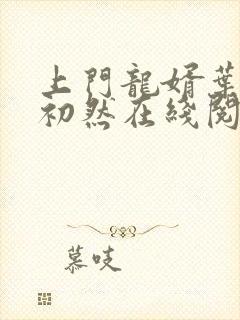 上門龍婿葉
初然在綫閱
慕吱